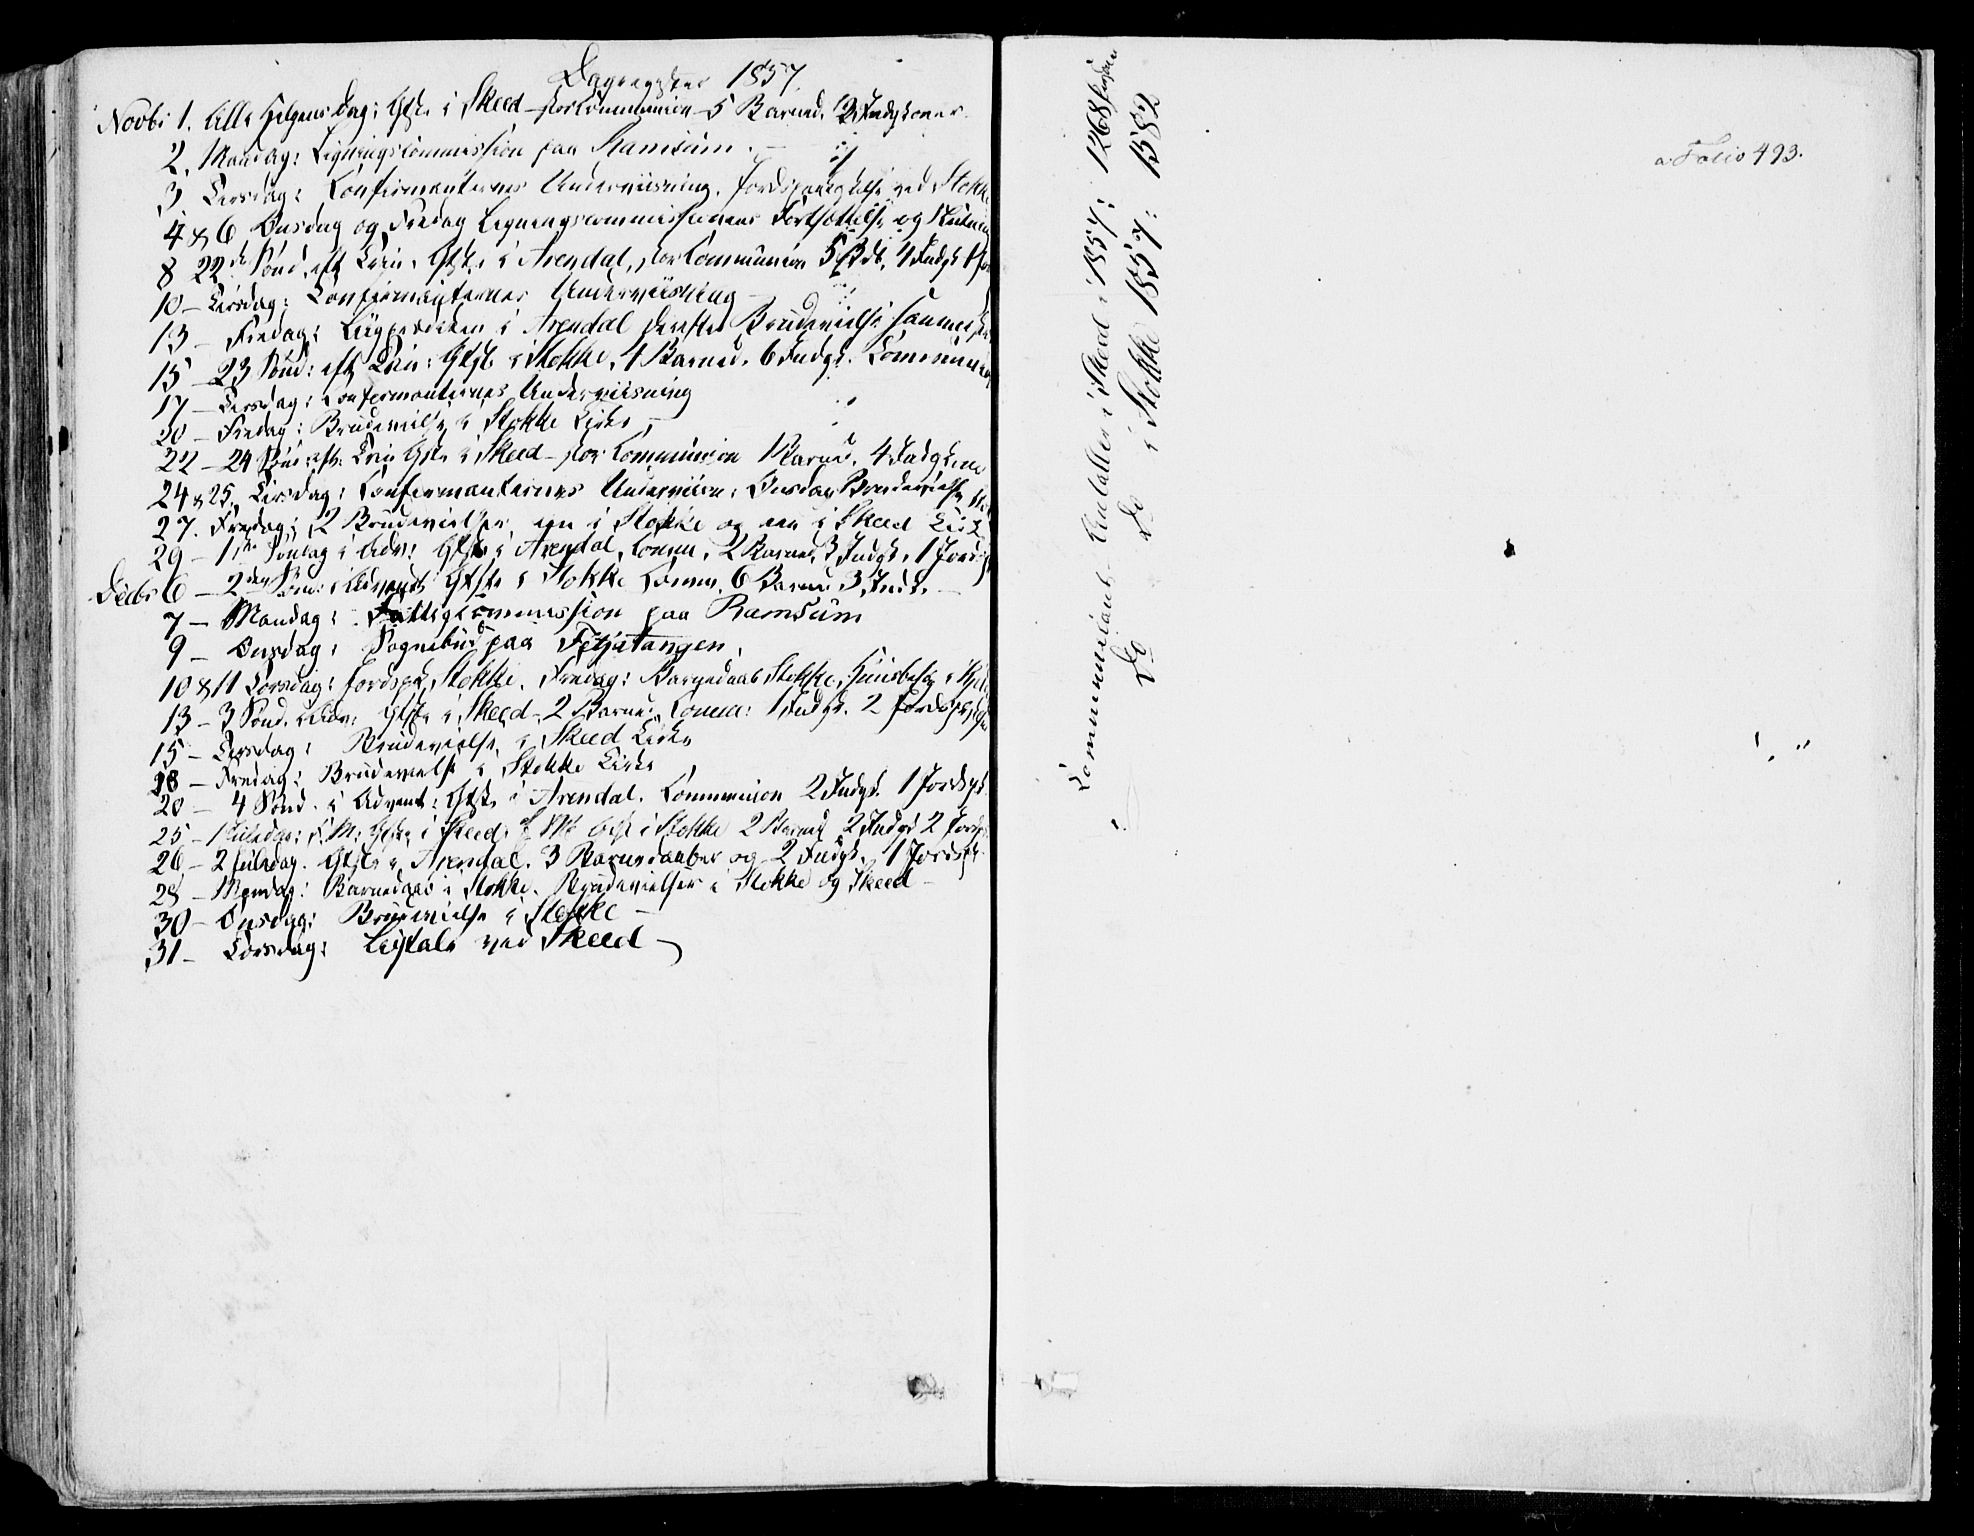 Dagregister 1857.
Novbr 1. Alle Helgens Dag: Gtstn i Skeed stor Communion 5 Barnd. 3 Indgkoner.
2. Mandag: Ligningscommission paa Ramsum.
3 Tirsdag: Confirmanternes Underviisning. Jordspaakastelse ved Stokke
4 & 6 Onsdag og Fredag Ligningscommissionens Fortsættelse og Slutning
8 22de Sønd. eft. Trin. Gtstn i Arendal, stor Communion 5 Bdb. 4 Indgk
10 – Tirsdag: Confirmanternes Underviisning
13 – Fredag: i Arendal derefter Brudevielse sammesteds
15 – 23 Sønd: eft Trin: Gtstn i Stokke, 1 Barned. 6 Indgk. Communion
17 – Tirsdag: Confirmanternes Underviisning
20 – Fredag: Brudevielse i Stokke Kirke –
22 – 24 Sønd: eft. Trin Gtstn i Skeed – stor Communion 1 Barnd. 4 Indgkone
24 & 25. Tirsdag: Confirmanternes Underviisn: Onsdag Brudevielse
27. Fredag: 2 Brudevielser, en i Stokke og een i Skeed Kirke
29 – 1ste Søndag i Adv: Gtstn i Arendal, Comm. 2 Barned. 3 Indgk. 1 Jordsp
Decbr 6 – 2den Sønd: i Advent Gtstn i Stokke Comm. 6 Barned 3 Indk. –
7 – Mandag: Fattigcommission paa Ramsum
9 – Onsdag: Sognebud paa Fetjatangen.
10 & 11 Torsdag: Jordspk. Stokke. Fredag: Barnedaab Stokke, Huusbesøg i
13 – 3 Sønd. i Adv: Gtstn i Skeed – 2 Barned. Comm: 1 Indgk. 2 Jordsp
15 – Tirsdag: Brudevielse i Skeed Kirke
18 – Fredag: Brudevielse i Stokke Kirke
20 – 4 Sønd. i Advent: Gtstn i Arendal. Communion 2 Indgk. 1 Jordspk.
25 – 1 Juledag: F. M: Gtstn i Skeed; E. M. Gtstn i Stokke 2 Barned 2 Indgk 2 Jordsp
26 – 2 Juledag. Gtstn i Arendal. 3 Barnedaaber og 2 Indgk. 1 Jordspk.
28 – Mandag: Barnedaab i Stokke. Brudevielser i Stokke og Skeed –
30 – Onsdag: Brudevielse i Stokke –
31 – Torsdag: Ligtale ved Skeed –
Communicant-Antallet i Skeed i 1857: 1268 Personer
Do Do i Stokke 1857: 1582
Folio 493.